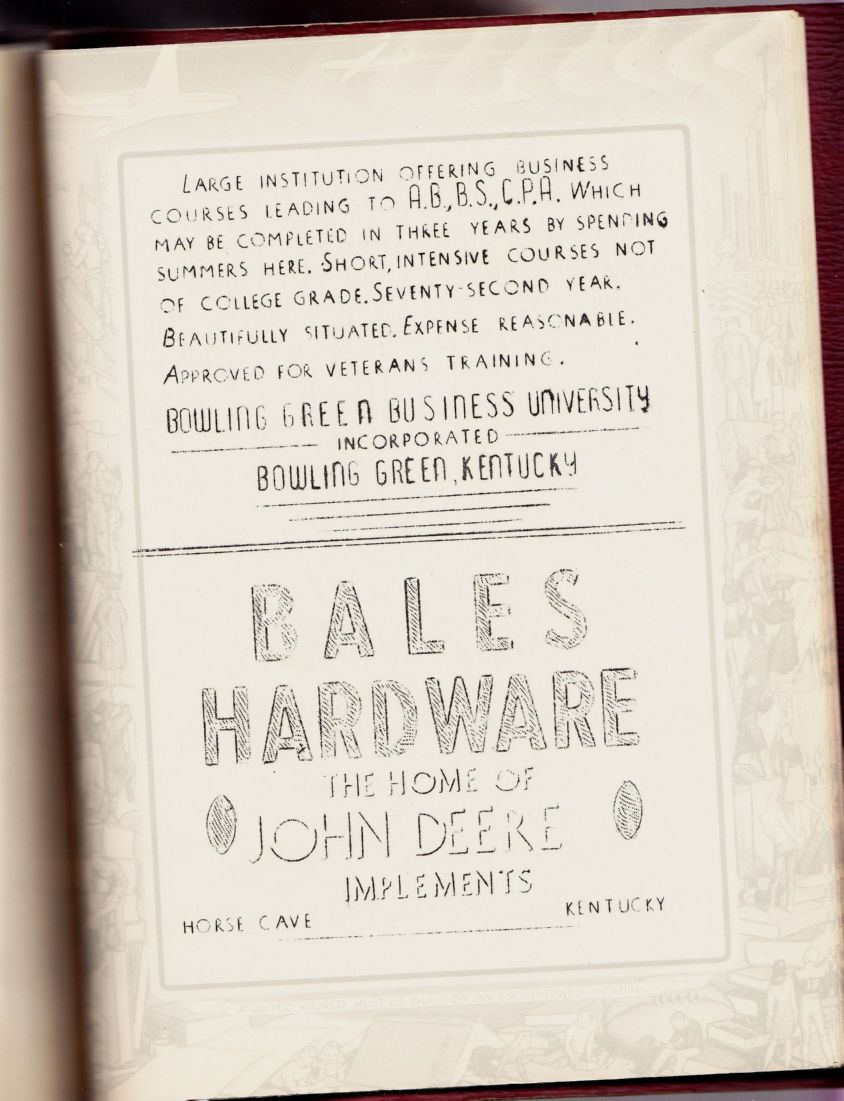 LARGE INSTITUTION OFFERING BUSINESS
COURSES LEADING TO A.B., B.S., C.P.A. WHICH
MAY BE COMPLETED IN THREE YEARS BY SPENDING
SUMMERS HERE. SHORT, INTENSIVE COURSES NOT
OF COLLEGE GRADE. SEVENTY-SECOND YEAR.
BEAUTIFULLY SITUATED. EXPENSE REASONABLE.
APPROVED FOR VETERANS TRAINING.
BOWLING GREEN BUSINESS UNIVERSITY
INCORPORATED
BOWLING GREEN, KENTUCKY
BALES
HARDWARE
THE HOME OF
JOHN DEERE
IMPLEMENTS
HORSE CAVE KENTUCKY
A UNITED WORLD MUST BE BUILT BY AN ENLIGHTENED YOUTH